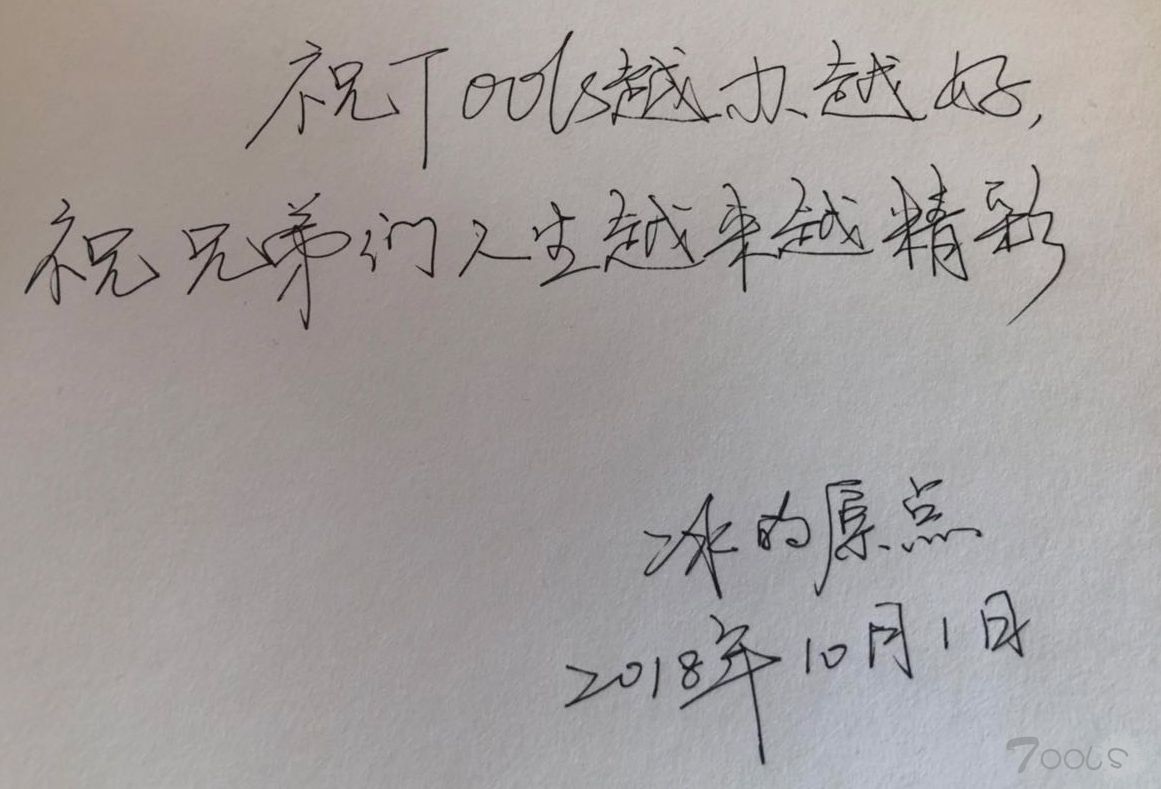 祝Tools越办越好,
祝兄弟们人生越来越精彩
冰的原点
2018年10月1日
TOOLS